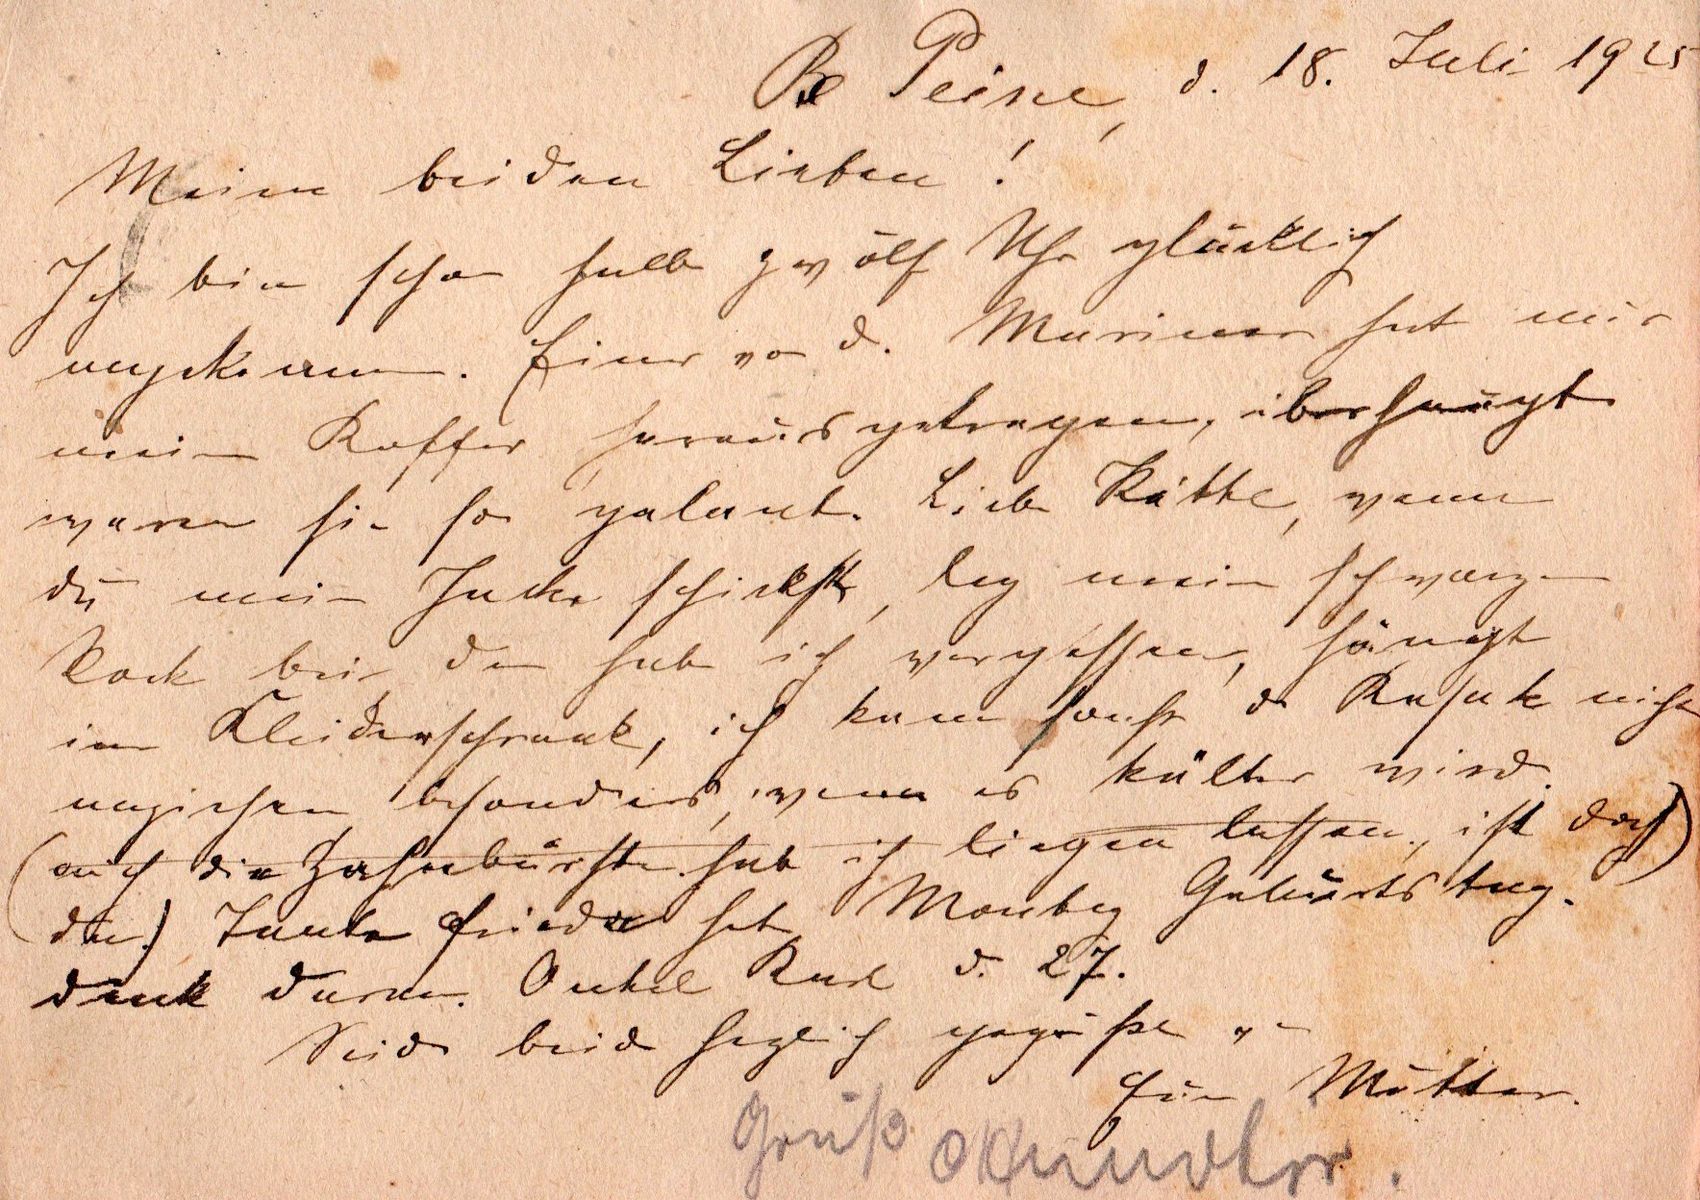 Peine, d. 18. Juli 1925
Meine beiden Lieben!
Ich bin schon halb zwölf Uhr glücklich
angekommen. Einer von d. Mariner hat mir
mein Koffer herausgetragen, überhaupt
waren sie so galant. Liebe Käthe, wenn
du meine Jacke schickst, leg mein schwarzen
Rock bei den hab ich vergessen, hängt
im Kleiderschrank, ich kann sonst d Kasak nicht
anziehen besonders, wenn es kälter wird.
(auch die Zahnbürste hab ich liegen lassen, ist doch)
da.) Tante Frieda hat Montag Geburtstag.
denk daran. Onkel Karl d. 27.
Seid beide herzlich gegrüßt von
Eure Mutter.
Gruß